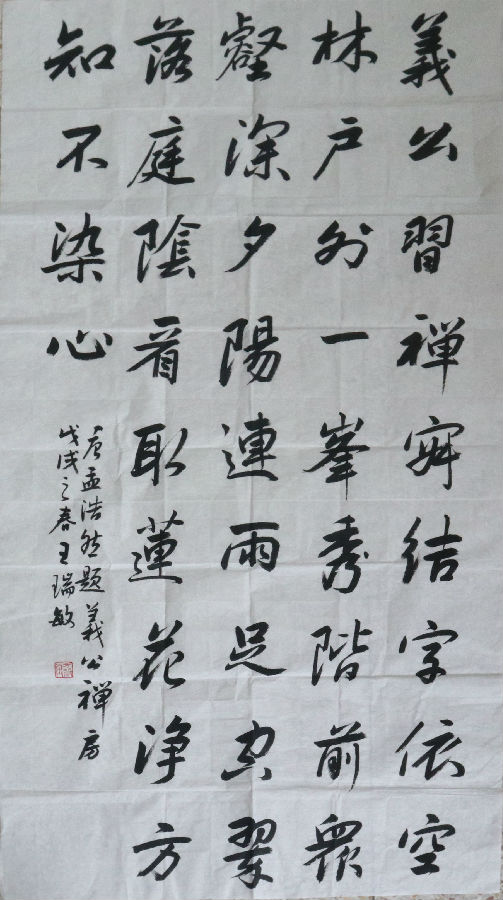 義公習禪寂結字依空
林戶外一峯秀階前衆
壑深夕陽連雨足空翠
落庭陰看取蓮花净方
知不染心
唐孟浩然題義公禪房
戊戌之春王瑞敏